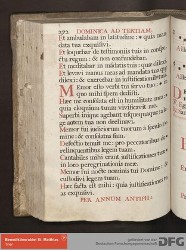 272 DOMINICA AD TERTIAM.
Et ambulabam in latitudine: quia man-
data tua exquisivi.
Et loquebar de testimoniis tuis in conspe-
ctu regum: & non confundebar.
Et meditabar in mandatis tuis: quæ dilexi.
Et levavi manus meas ad mandata tua quæ
dilexi: & exercebar in justificationibus
MEmor esto verbi tui servo tuo:
quo mihi spem dedisti.
Hæc me consolata est in humilitate mea:
quia eloquium tuum vivificavit me.
Superbi inique agebant usquequaque: a le-
ge autem tua non declinavi.
Memor fui judiciorum tuorum a sæculo
mine: & consolatus sum.
Defectio tenuit me: pro peccatoribus de-
relinquentibus legem tuam.
Cantabiles mihi erant justificationes tuæ:
in loco peregrinationis meæ.
Memor fui nocte nominis tui Domine: &
custodivi legem tuam.
Hæc facta est mihi: quia justificationes
as exquisivi.
PER ANNUM ANTIPH:
DFG